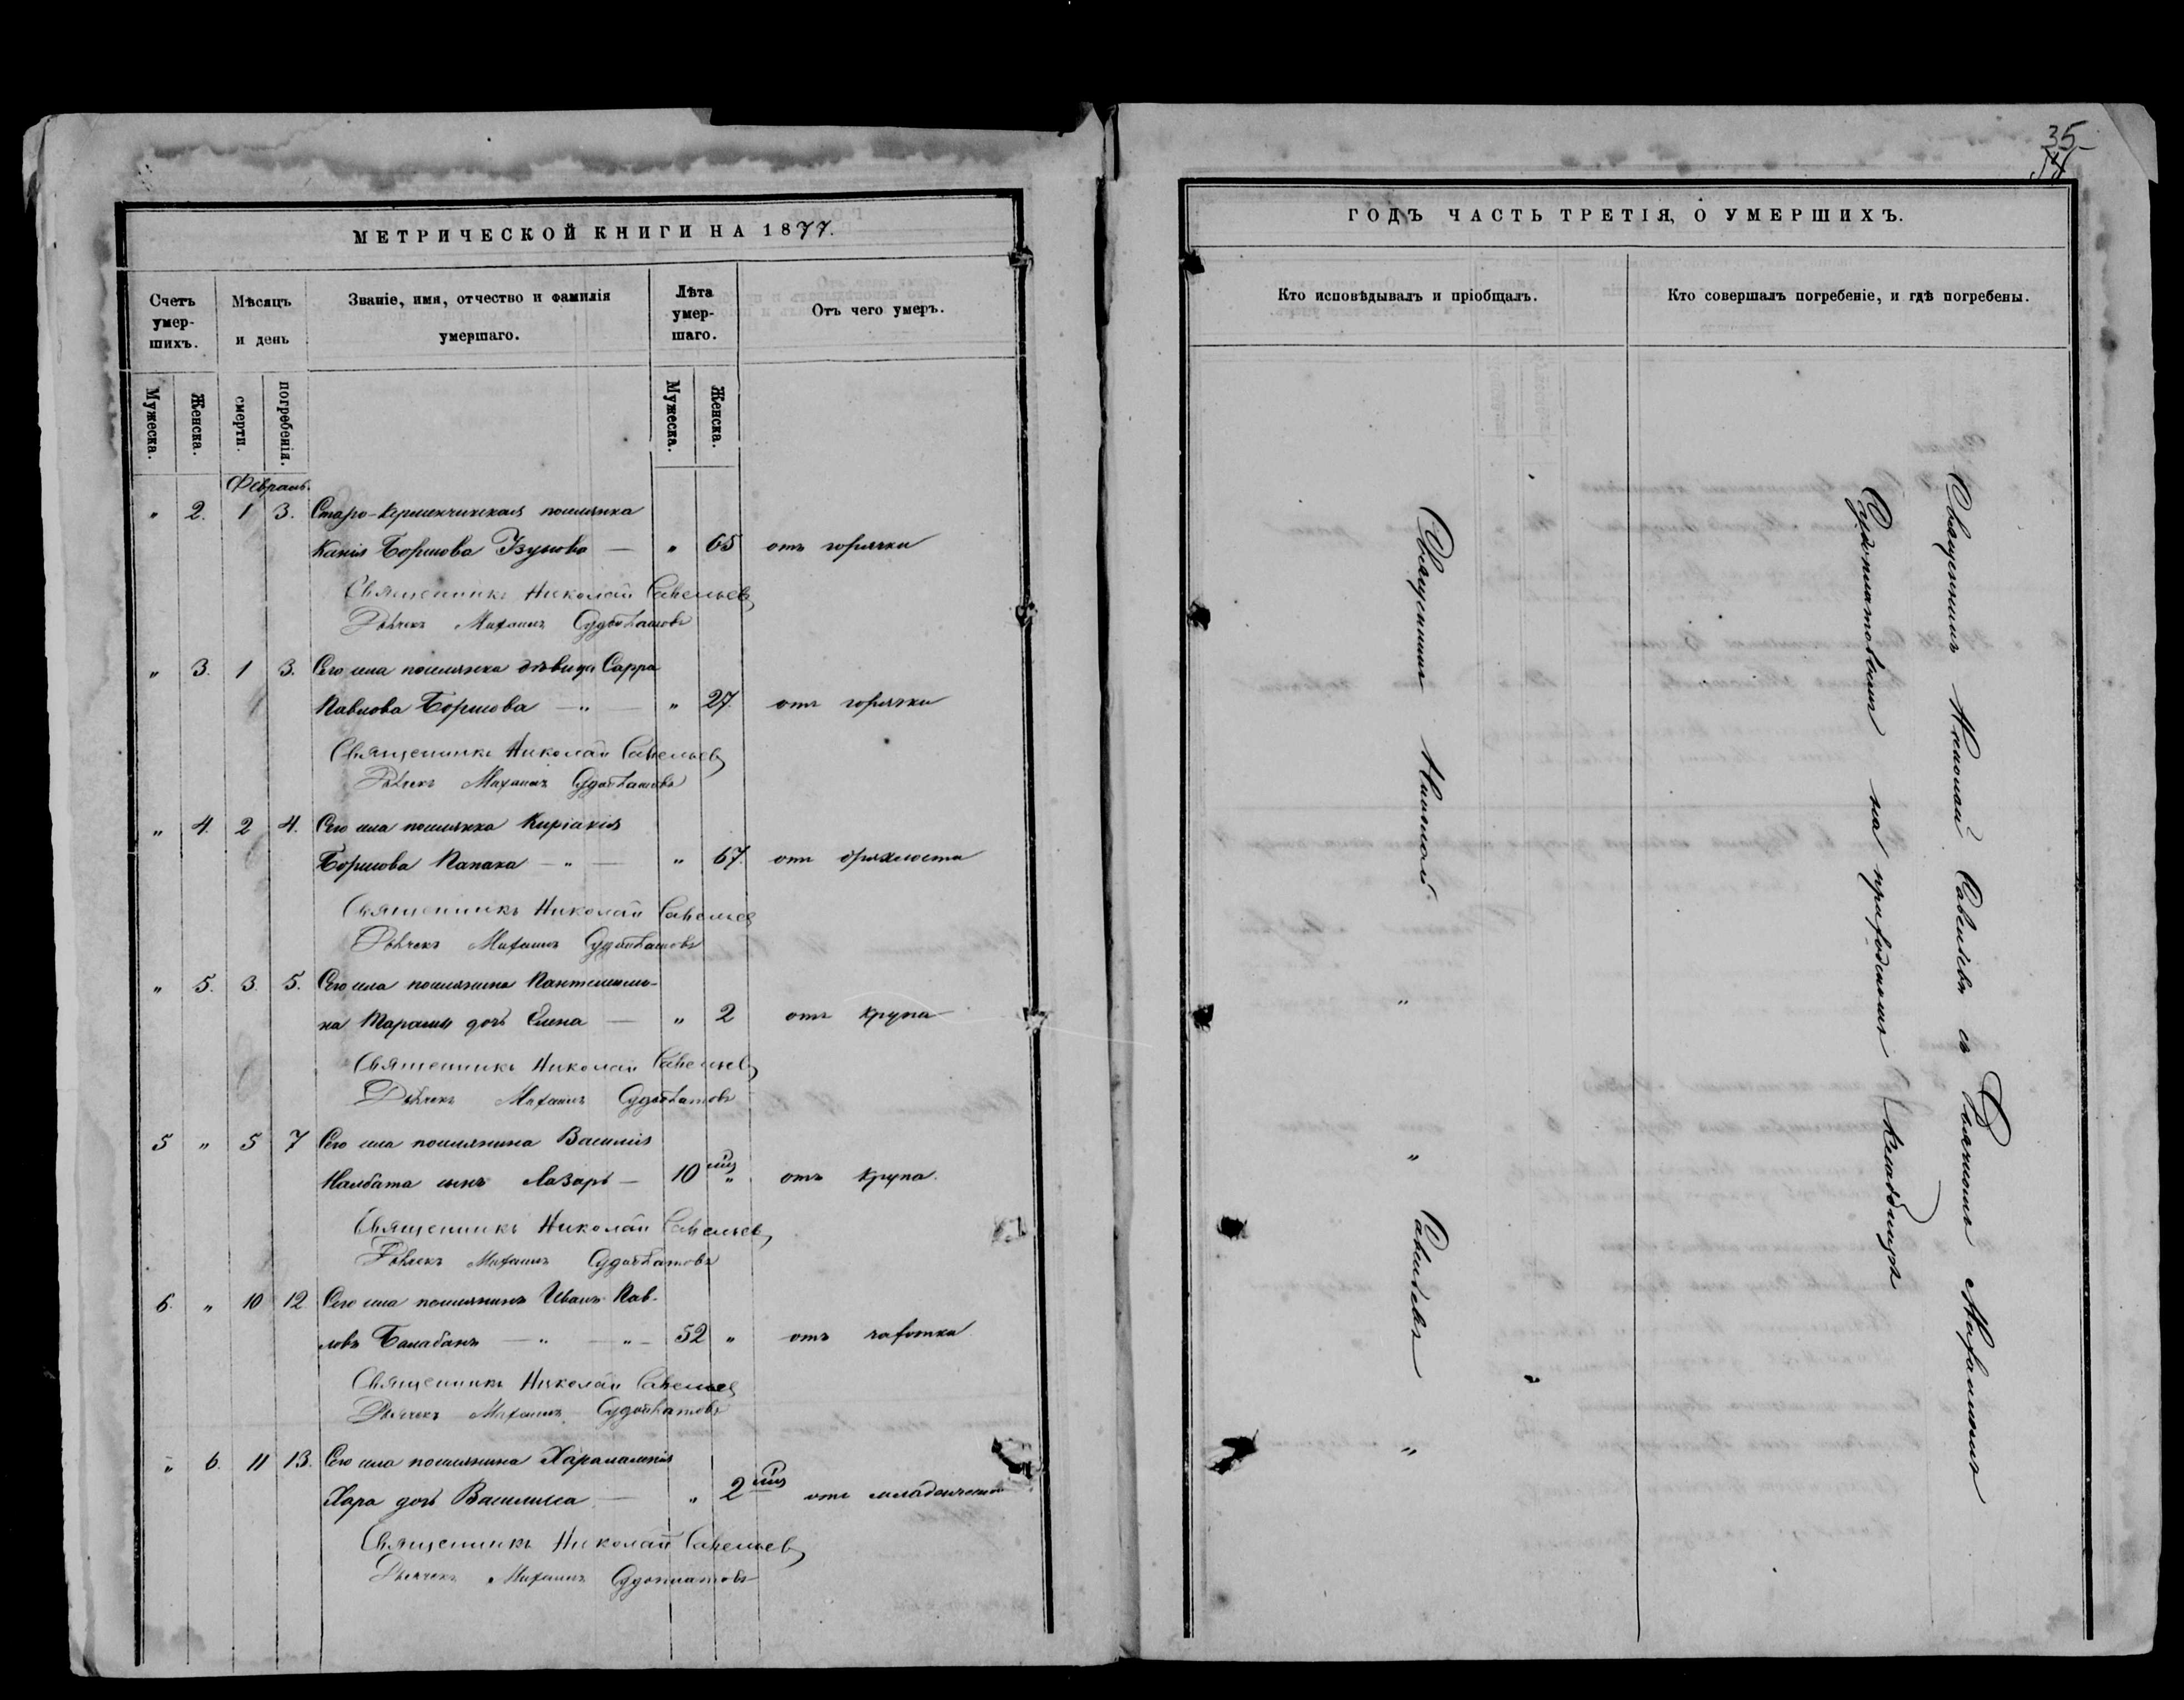 МЕТРИЧЕСКОЙ КНИГИ НА 1877.
Счетъ умер-шихъ.
Мѣсяцъ и день
Званіе, имя, отчество и фамилія умершаго.
Лѣта умер-шаго.
Отъ чего умеръ.
Мужеска. Женска. смерти. погребенія. Мужеска. Женска.
Февраль.
" 2. 1 3. Старо-Керменчикская поселянка
Борисова — " 65 отъ горячки
Священникъ Николай Савельев
Дьячекъ Михаилъ Судоплатовъ
" 3. 1 3. Сего села поселянка дѣвица Сарра
Павлова Борисова — " — " 27. отъ горячки
Священникъ Николай Савельев
Дьячекъ Михаилъ Судоплатовъ
" 4. 2 4. Сего села поселянка Киріакія
Борисова Папака — " — " 67. отъ дряхлости
Священникъ Николай Савельев
Дьячекъ Михаилъ Судоплатовъ
" 5. 3. 5. Сего села поселянина Пантелеимо-
на дочь Елена — " 2 отъ крупа
Священникъ Николай Савельев
Дьячекъ Михаилъ Судоплатовъ
5 " 5 7 Сего села поселянина Василія
Налбата сынъ Лазарь — 10 мц " отъ крупа.
Священникъ Николай Савельев
Дьячекъ Михаилъ Судоплатовъ
6. " 10 12. Сего села поселянинъ Иванъ Пав-
ловъ Балабанъ — " — " — 52 " отъ чахотка
Священникъ Николай Савельев
Дьячекъ Михаилъ Судоплатовъ
" 6. 11 13. Сего села поселянина Харалампія
Хара дочь Василиса — " 2 мц отъ младенческой
Священникъ Николай Савельев
Дьячекъ Михаилъ Судоплатовъ
35
ГОДЪ ЧАСТЬ ТРЕТІЯ, О УМЕРШИХЪ.
Кто исповѣдывалъ и пріобщалъ.
Кто совершалъ погребеніе, и гдѣ погребены.
Священникъ Николай " " Савельевъ "
Священникъ Николай Савельевъ съ Дьячкомъ Михаиломъ
Судоплатовымъ на приходскомъ кладбищѣ